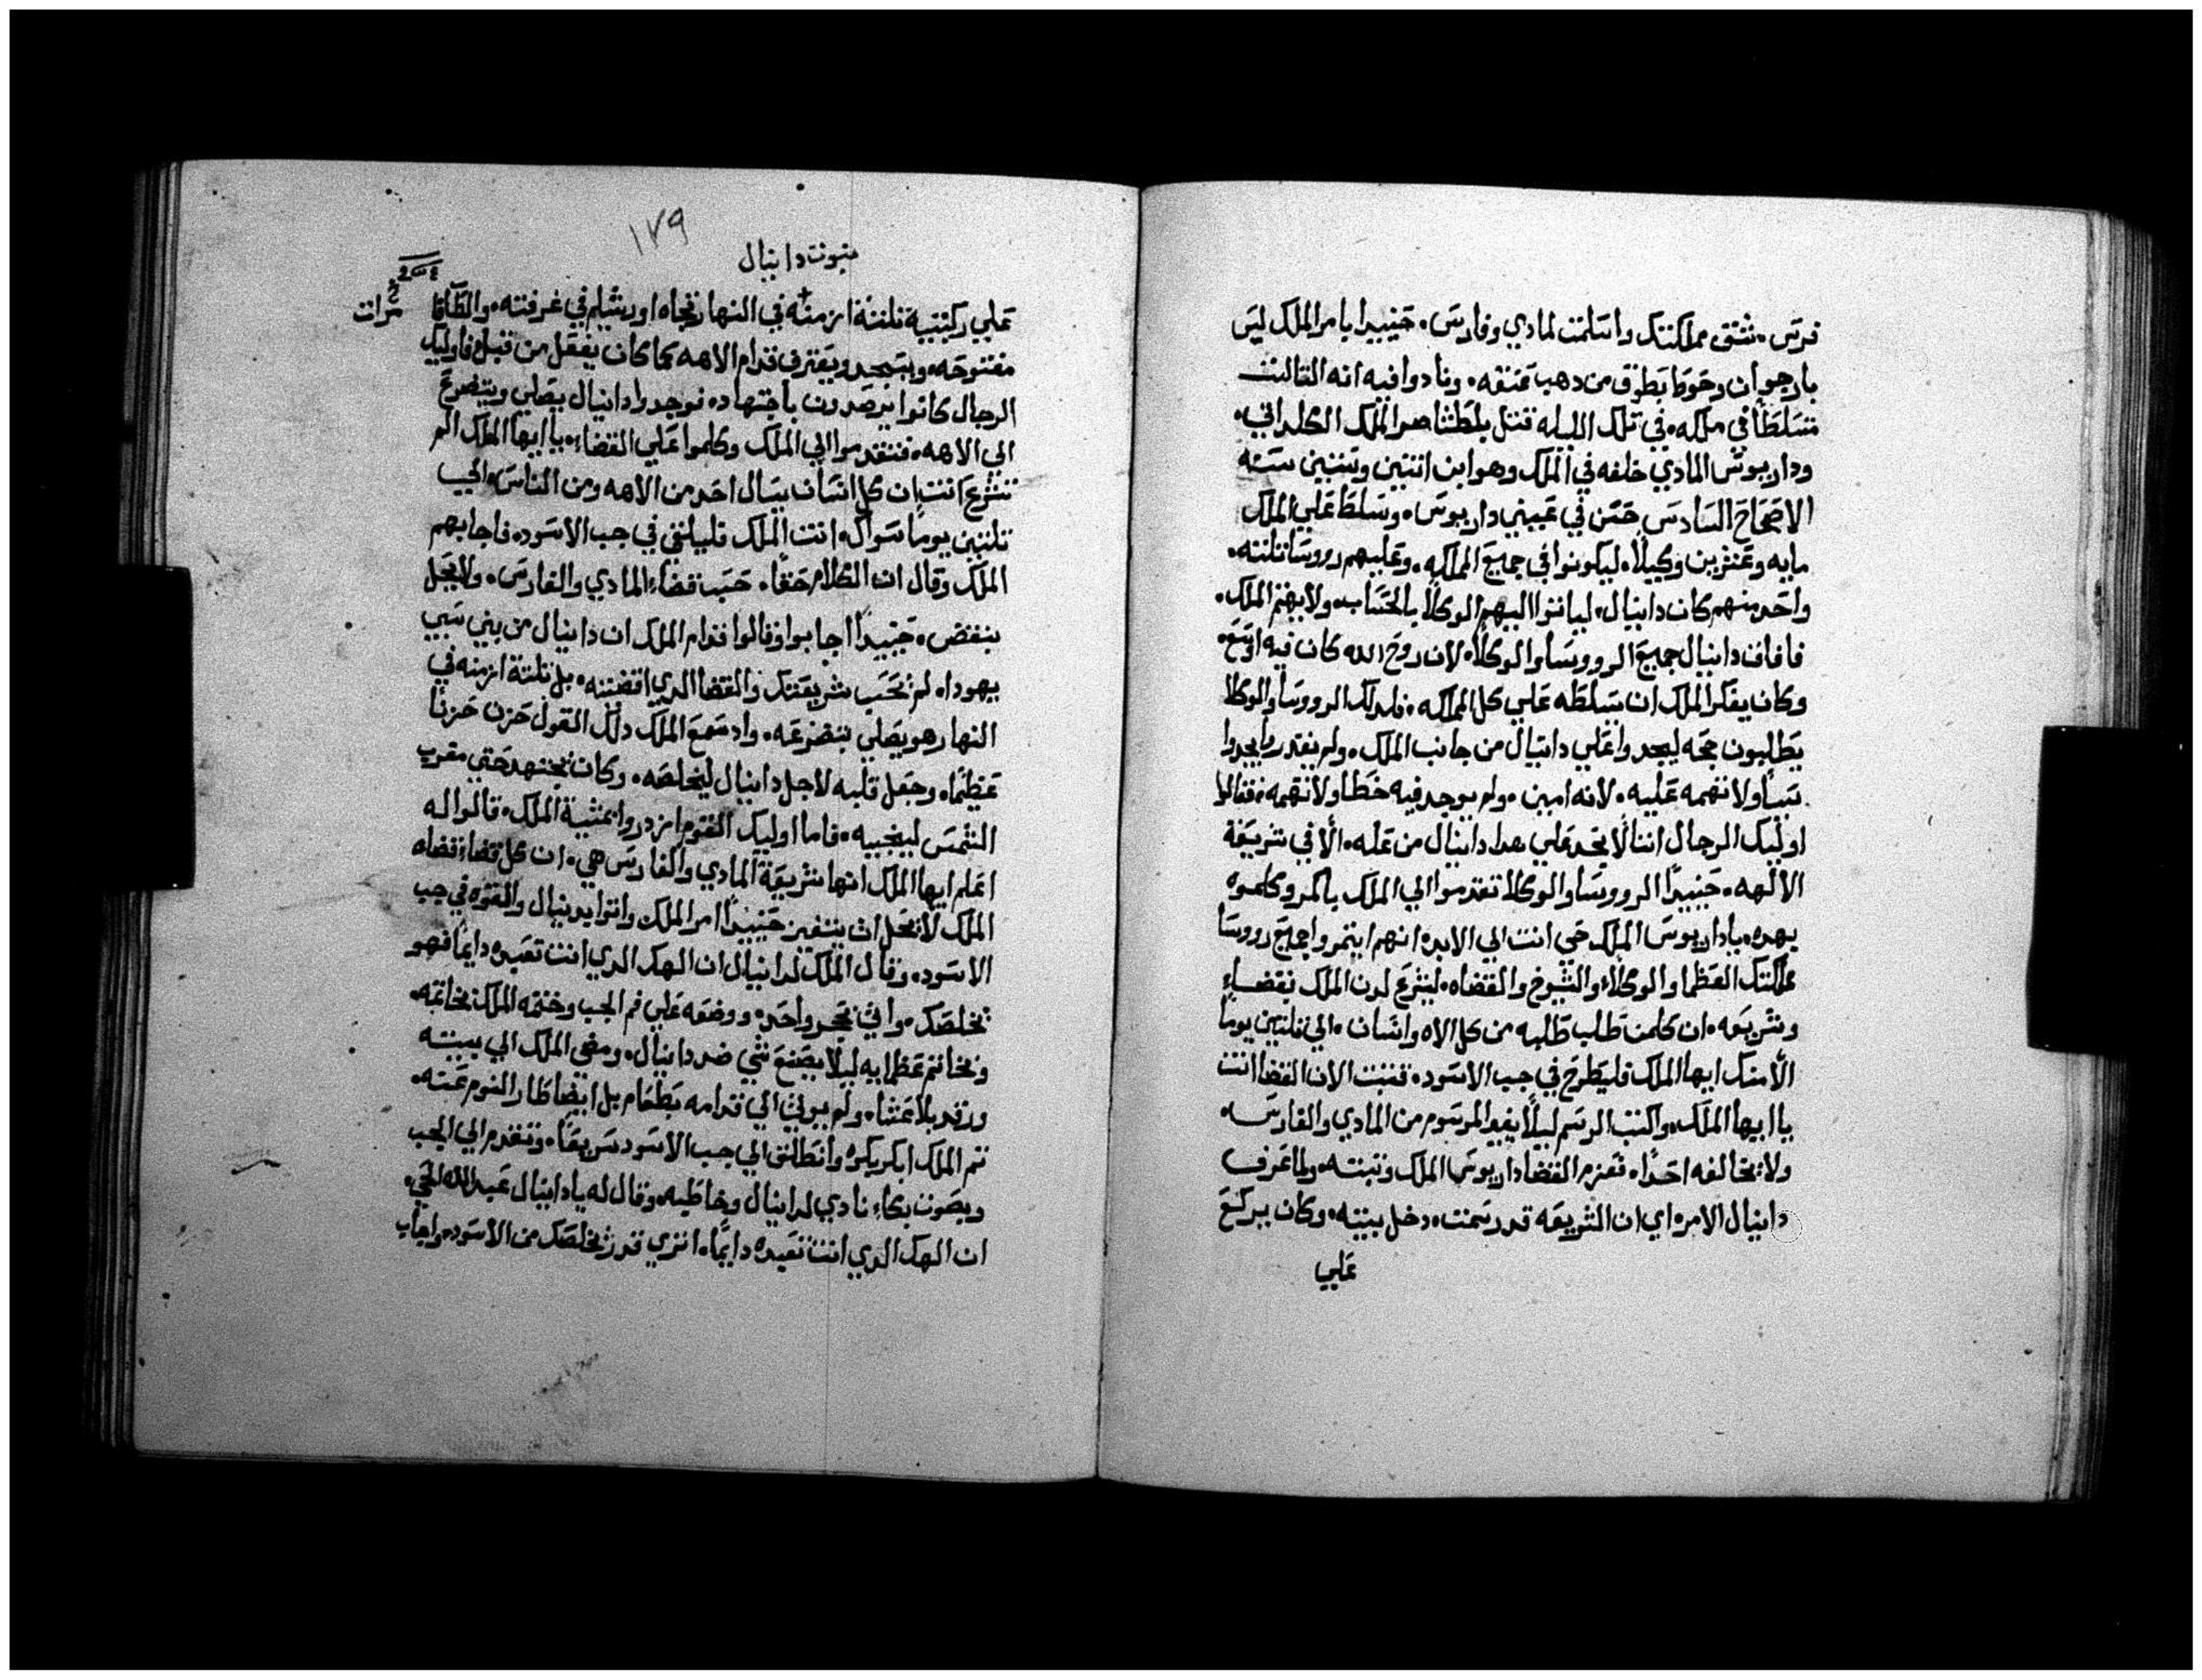 فرس. شقق مملكتك واسلمت لمادي وفارس. حينيدا بامر الملك ليس
بارجوان وحوط بطوق من دهب عنقه. ونادوا فيه انه التالت
متسلطا في ملكه. في تلك الليله قتل بلطشاصر الملك الكلداني.
وداريوس المادي خلفه في الملك وهو ابن اتنين وستين سنه
الاصحاح السادس حسن في عيني داريوس. وسلط علي الملك
مايه وعشرين وكيلا. ليكونوا في جميع المملكه. وعليهم رووسا تلته.
واحد منهم كان دانيال. لياتوا اليهم الوكلا بالحساب. ولا يهتم الملك.
فافاق دانيال جميع الرووسا والوكلا. لان روح الله كان فيه اوسع
وكان يفكر الملك ان يسلطه علي كل المملكه. فلدلك الرووسا والوكلا
يطلبون حجه ليجدوا علي دانيال من جانب الملك. ولم يقدروا يجدوا
سببا ولا تهمه عليه. لانه امين. ولم يوجد فيه خطا ولا تهمه. فقالوا
اوليك الرجال اننا لا نجد علي هدا دانيال من عله. الا في شريعة
الالهه. حينيدا الرووسا والوكلا تقدموا الي الملك بالمكر وكلموه
بهده. يا داريوس الملك حي انت الي الابد. انهم ايتمروا جميع رووسا
مملكتك العظما والوكلاء والشيوخ والقضاه. ليشرع لدن الملك بقضاء
وشريعه. ان كلمن طلب طلبه من كل الاه وانسان. الي تلتين يوما
الا منك ايها الملك فليطرح في جب الاسود. فتبت الان القضا انت
يا ايها الملك. واكتب الرسم ليلا يغير المرسوم من المادي والفارس.
ولا يخالفه احدا. فعزم القضا داريوس الملك وتبته. ولما عرف
دانيال الامر. اي ان الشريعه قد رسمت. دخل بيته. وكان يركع
علي
نبوت دانيال
١٧٩
علي ركبتيه تلتة ازمنه في النهار تجاه اورشليم في غرفته. والطاقا
مرات
مفتوحه. ويسجد ويعترف قدام الاهه كما كان يفعل من قبل. فاوليك
الرجال كانوا يرصدون باجتهاد. فوجدوا دانيال يصلي ويتضرع
الي الاهه. فتقدموا الي الملك وكلموا علي القضاء. يا ايها الملك الم
تشرع انت ان كل انسان يسال احد من الاهه ومن الناس. الي
تلتين يوما سواك. انت الملك فليلقي في جب الاسود. فاجابهم
الملك وقال ان الكلام حقا. حسب قضاء المادي والفارس. ولا يحل
بنقض. حينيدا اجابوا وقالوا قدام الملك ان دانيال من بني سبي
يهودا. لم يحسب شريعتك والقضا الدي اقضته. بل تلتة ازمنه في
النهار هو يصلي بتضرعه. واد سمع الملك دلك القول حزن حزنا
عظيما. وجعل قلبه لاجل دانيال ليخلصه. وكان يجتهد حتي مغرب
الشمس لينجيه. فاما اوليك القوم ازدروا بمشية الملك. قالوا له
اعلم ايها الملك انها شريعة المادي والفارس هي. ان كل قضاء قضاه
الملك لا يحل ان يتغير حينيدا امر الملك. واتوا بدنيال والقوه في جب
الاسود. وقال الملك لدانيال ان الهك الدي انت تعبده دايما فهو
يخلصك. واتي بحجر واحد. ووضعه علي فم الجب وختمه الملك بخاتمه.
وبخاتم عظمايه ليلا يصنع شي ضد دانيال. ومضي الملك الي بيته
ورقد بلا عشاء. ولم يوتي الي قدامه بطعام بل ايضا طار النوم عنه.
تم الملك ابكر بكره وانطلق الي جب الاسود سريعا. وتقدم الي الجب
وبصوت بكاء نادي لدانيال وخاطبه. وقال له يا دانيال عبد الله الحي.
ان الهك الدي انت تعبده دايما. اتري قدر يخلصك من الاسود. واجاب